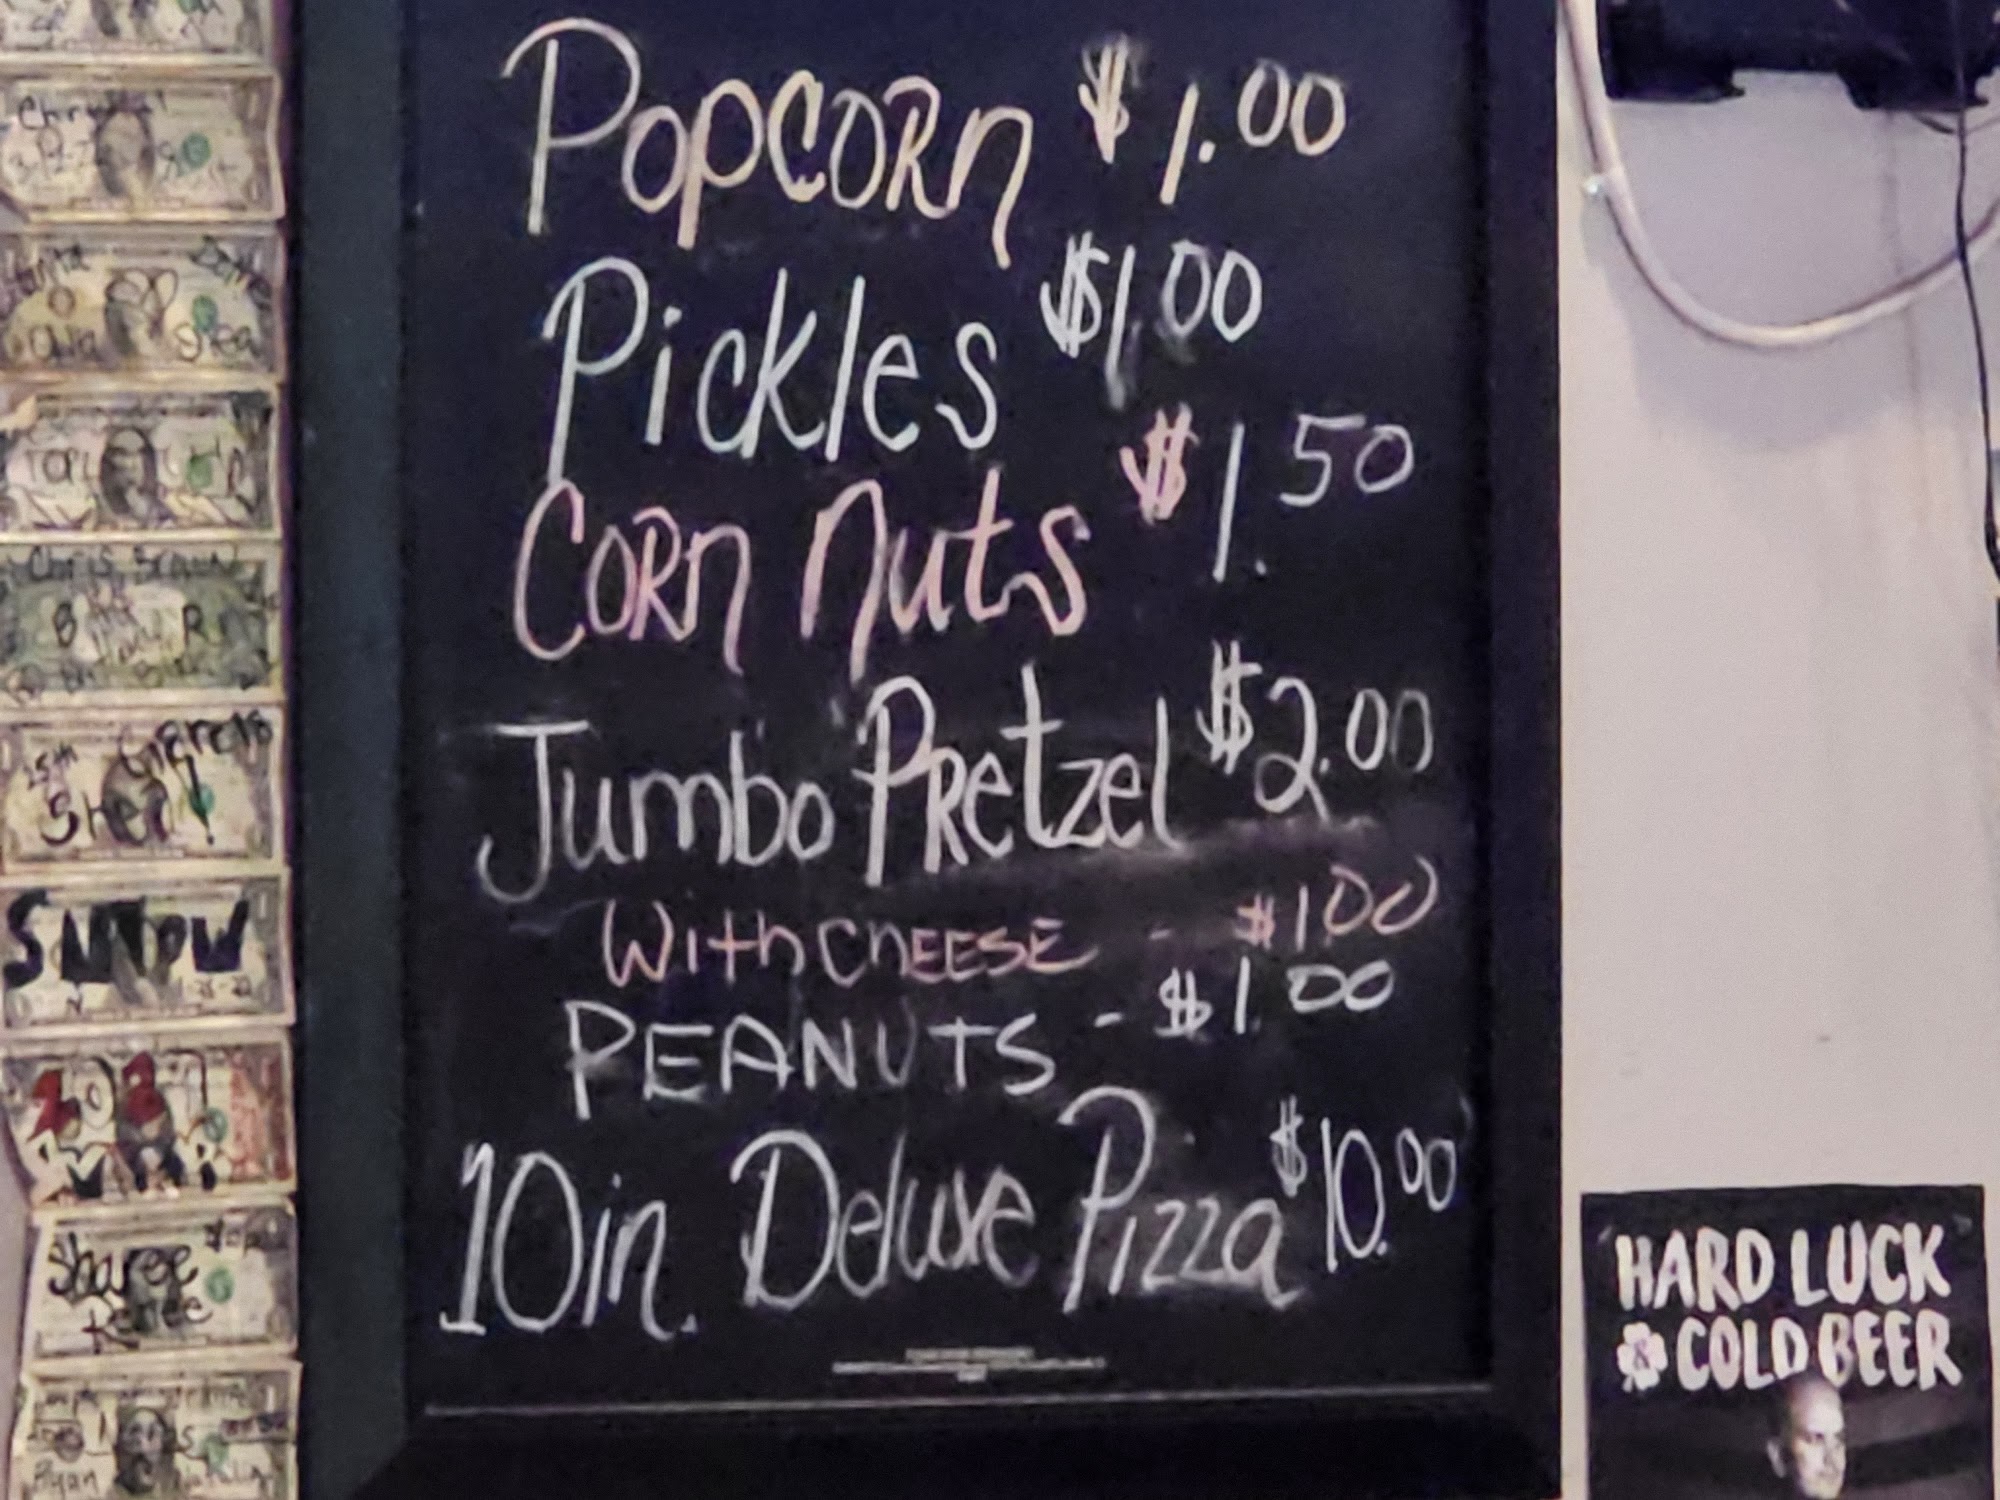 Popcorn $1.00
Pickles $1.00
Corn Nuts $1.50
Jumbo Pretzel $2.00
With Cheese - $1.00
PEANUTS - $1.00
10in. Deluxe Pizza $10.00
HARD LUCK
& COLD BEER
Chris Brown
B R
25th
Shea!
Sharee
Renee
Ryan